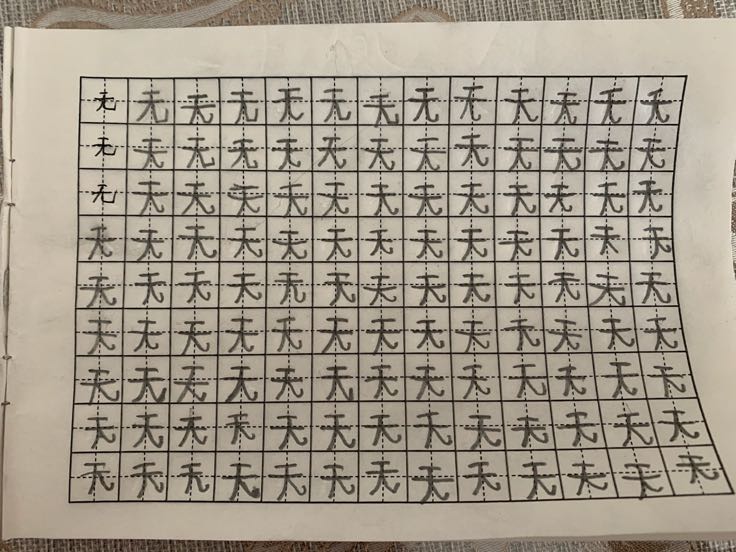 无 无 无 无 无 无 无 无 无 无 无 无 无
无 无 无 无 无 无 无 无 无 无 无 无 无
无 无 无 无 无 无 无 无 无 无 无 无 无
无 无 无 无 无 无 无 无 无 无 无 无 无
无 无 无 无 无 无 无 无 无 无 无 无 无
无 无 无 无 无 无 无 无 无 无 无 无 无
无 无 无 无 无 无 无 无 无 无 无 无 无
无 无 无 无 无 无 无 无 无 无 无 无 无
无 无 无 无 无 无 无 无 无 无 无 无 无